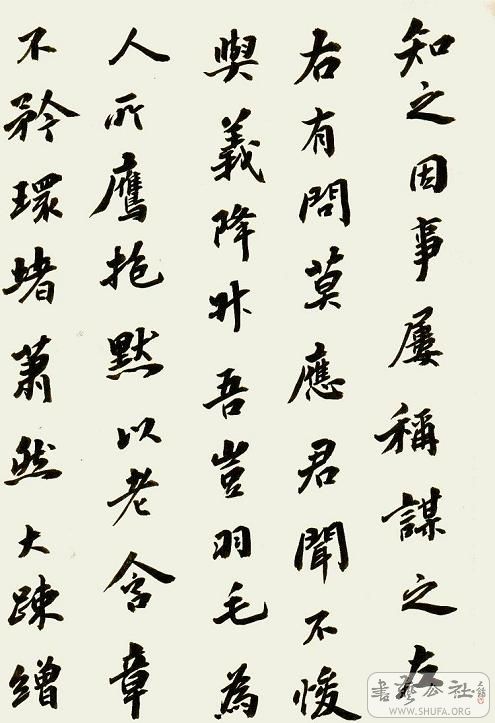 知之因事屢稱謀之左
右有問莫應君聞不悛
與義降升吾豈羽毛為
人所鷹抱默以老含章
不矜環堵蕭然大踈繒
書藝公社
WWW.SHUFA.ORG